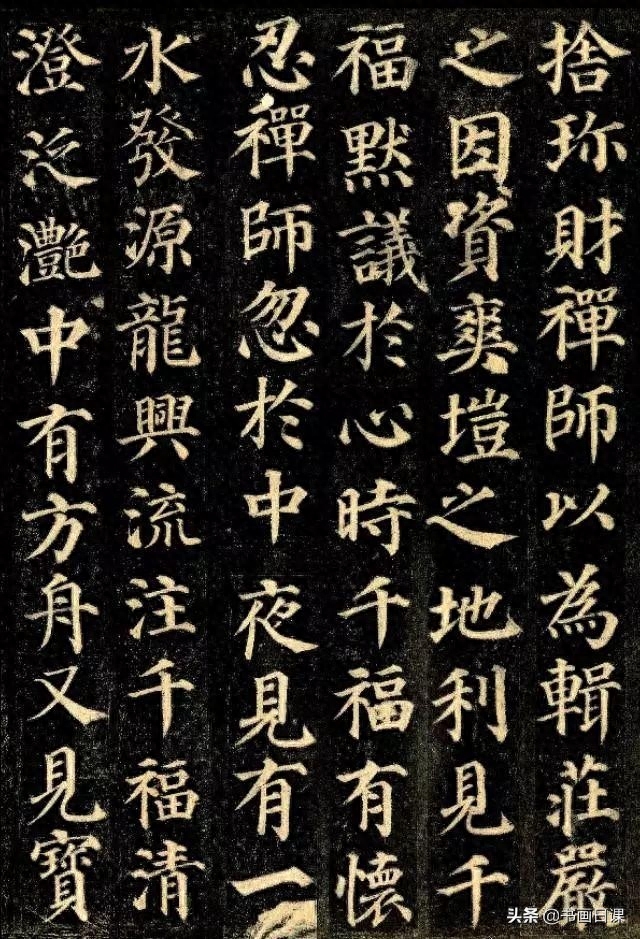 捨珎財禪師以為輯莊嚴
之因資爽塏之地利見千
福默議於心時千福有懷
忍禪師忽於中夜見有一
水發源龍興流注千福清
澄泛灔中有方舟又見寶
头条@书画日课